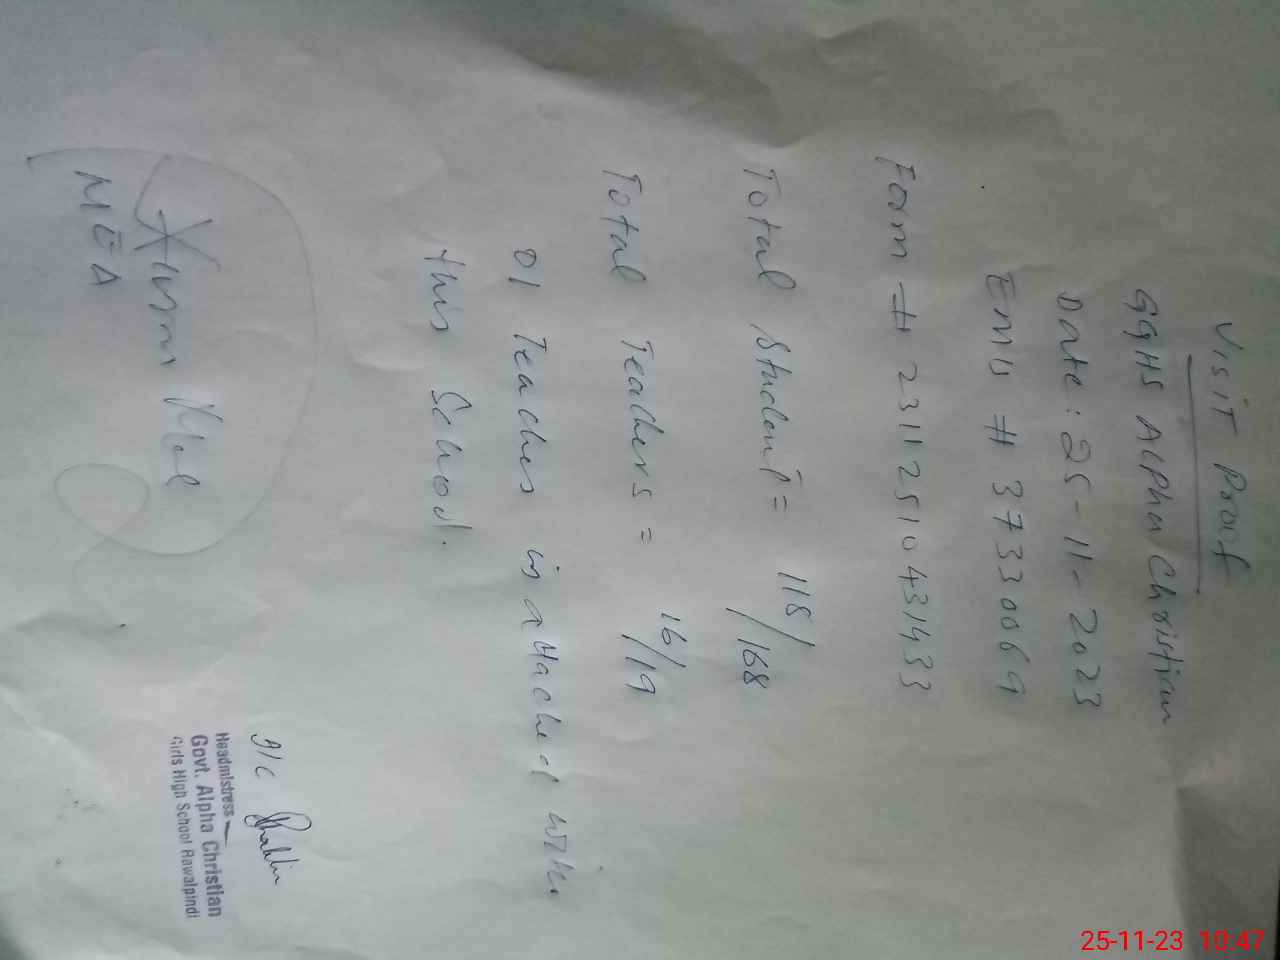 Visit Proof
GGHS Alpha Christian
Date: 25-11-2023
Emis # 37330069
Form # 23112510431433
Total Student = 118/168
Total Teachers = 16/19
01 Teacher is attached with
this School.
MEA
I/C
Headmistress
Govt. Alpha Christian
Girls High School Rawalpindi
25-11-23 10:47